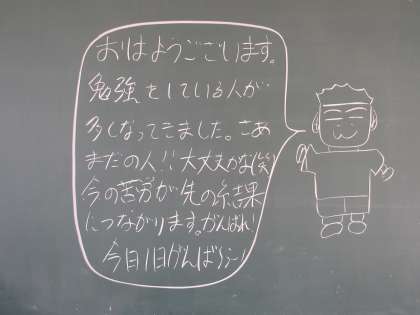 おはようございます。
勉強をしている人が
多くなってきました。さあ
まだの人!!大丈夫かな(笑)
今の苦労が先の結果
につながります。がんばれ!
今日1日がんばろう!